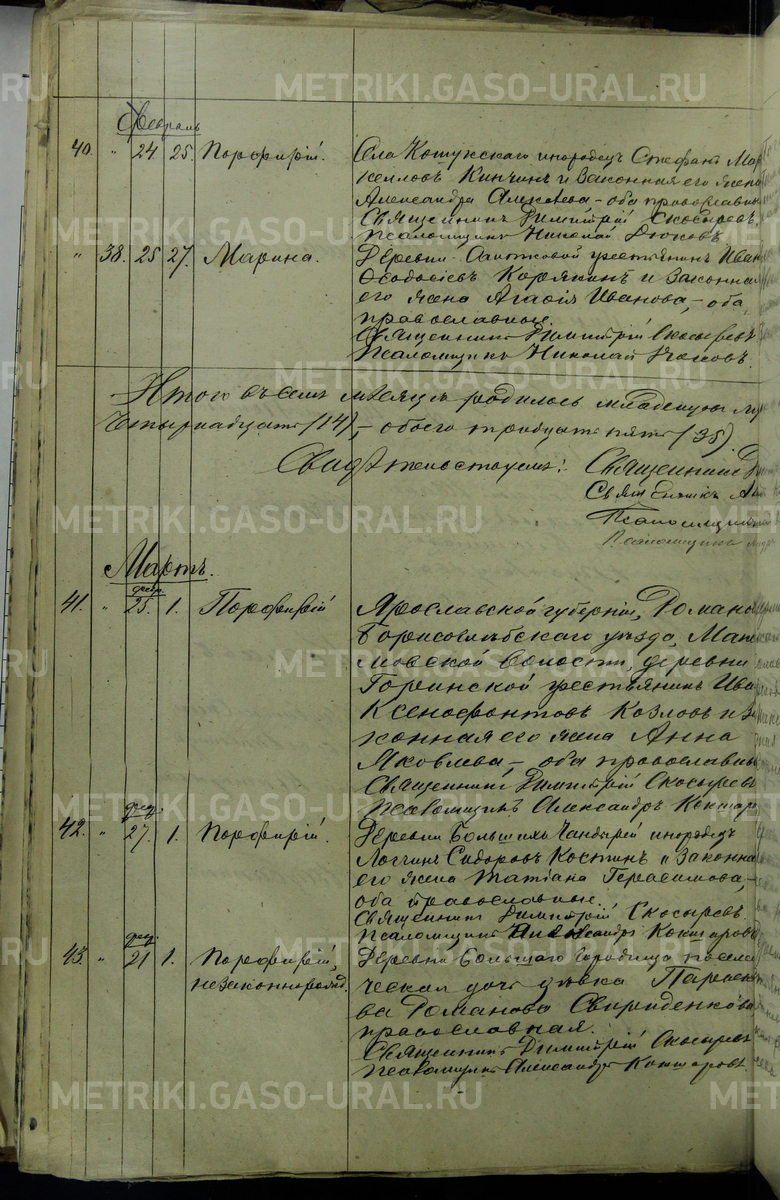 METRIKI.GASO-URAL.RU
Февраль
40. " 24 25. Порфирий. Села Кошукскаго инородец Стефан Мар
келлов Кинчин и законная его жена
Александра Алексеева – оба православные
Священник Димитрий Скосырев.
Псаломщик Николай
" 38. 25 27. Марина. Деревни крестьянин Иван
Феодосиев Корякин и законная
его жена Агафия Иванова, – оба
православные.
Священник Димитрий Скосырев
Псаломщик Николай
Итого в сем месяце родилось младенцев
Четырнадцать (14), – обоего тридцать пять (35)
Свидетельствуем: Священник
Священник
Псаломщик
Псаломщик
Мартъ.
41. " февр. 25. 1. Порфирий Ярославской губернии, Романо
Борисоглебскаго уезда,
волости, деревни
Горинской крестьянин Ива
Ксенофонтов Козлов и за
конная его жена Анна
Яковлева, – оба православные
Священник Димитрий Скосырев
Псаломщик Александр Кокшаров
42. " фев. 27. 1. Порфирий. Деревни Больших Чандырей инородец
Логгин Сидоров Костин и законная
его жена Татиана Герасимова, –
оба православные.
Священник Димитрий Скосырев.
Псаломщик Александр Кокшаров
43. " фев. 21 1. Порфирий, Деревни Большаго Городища поселен
незаконнорожд. ческая дочь девка Параске
ва Романова Свириденкова
православная.
Священник Димитрий Скосырев
Псаломщик Александр Кокшаров.